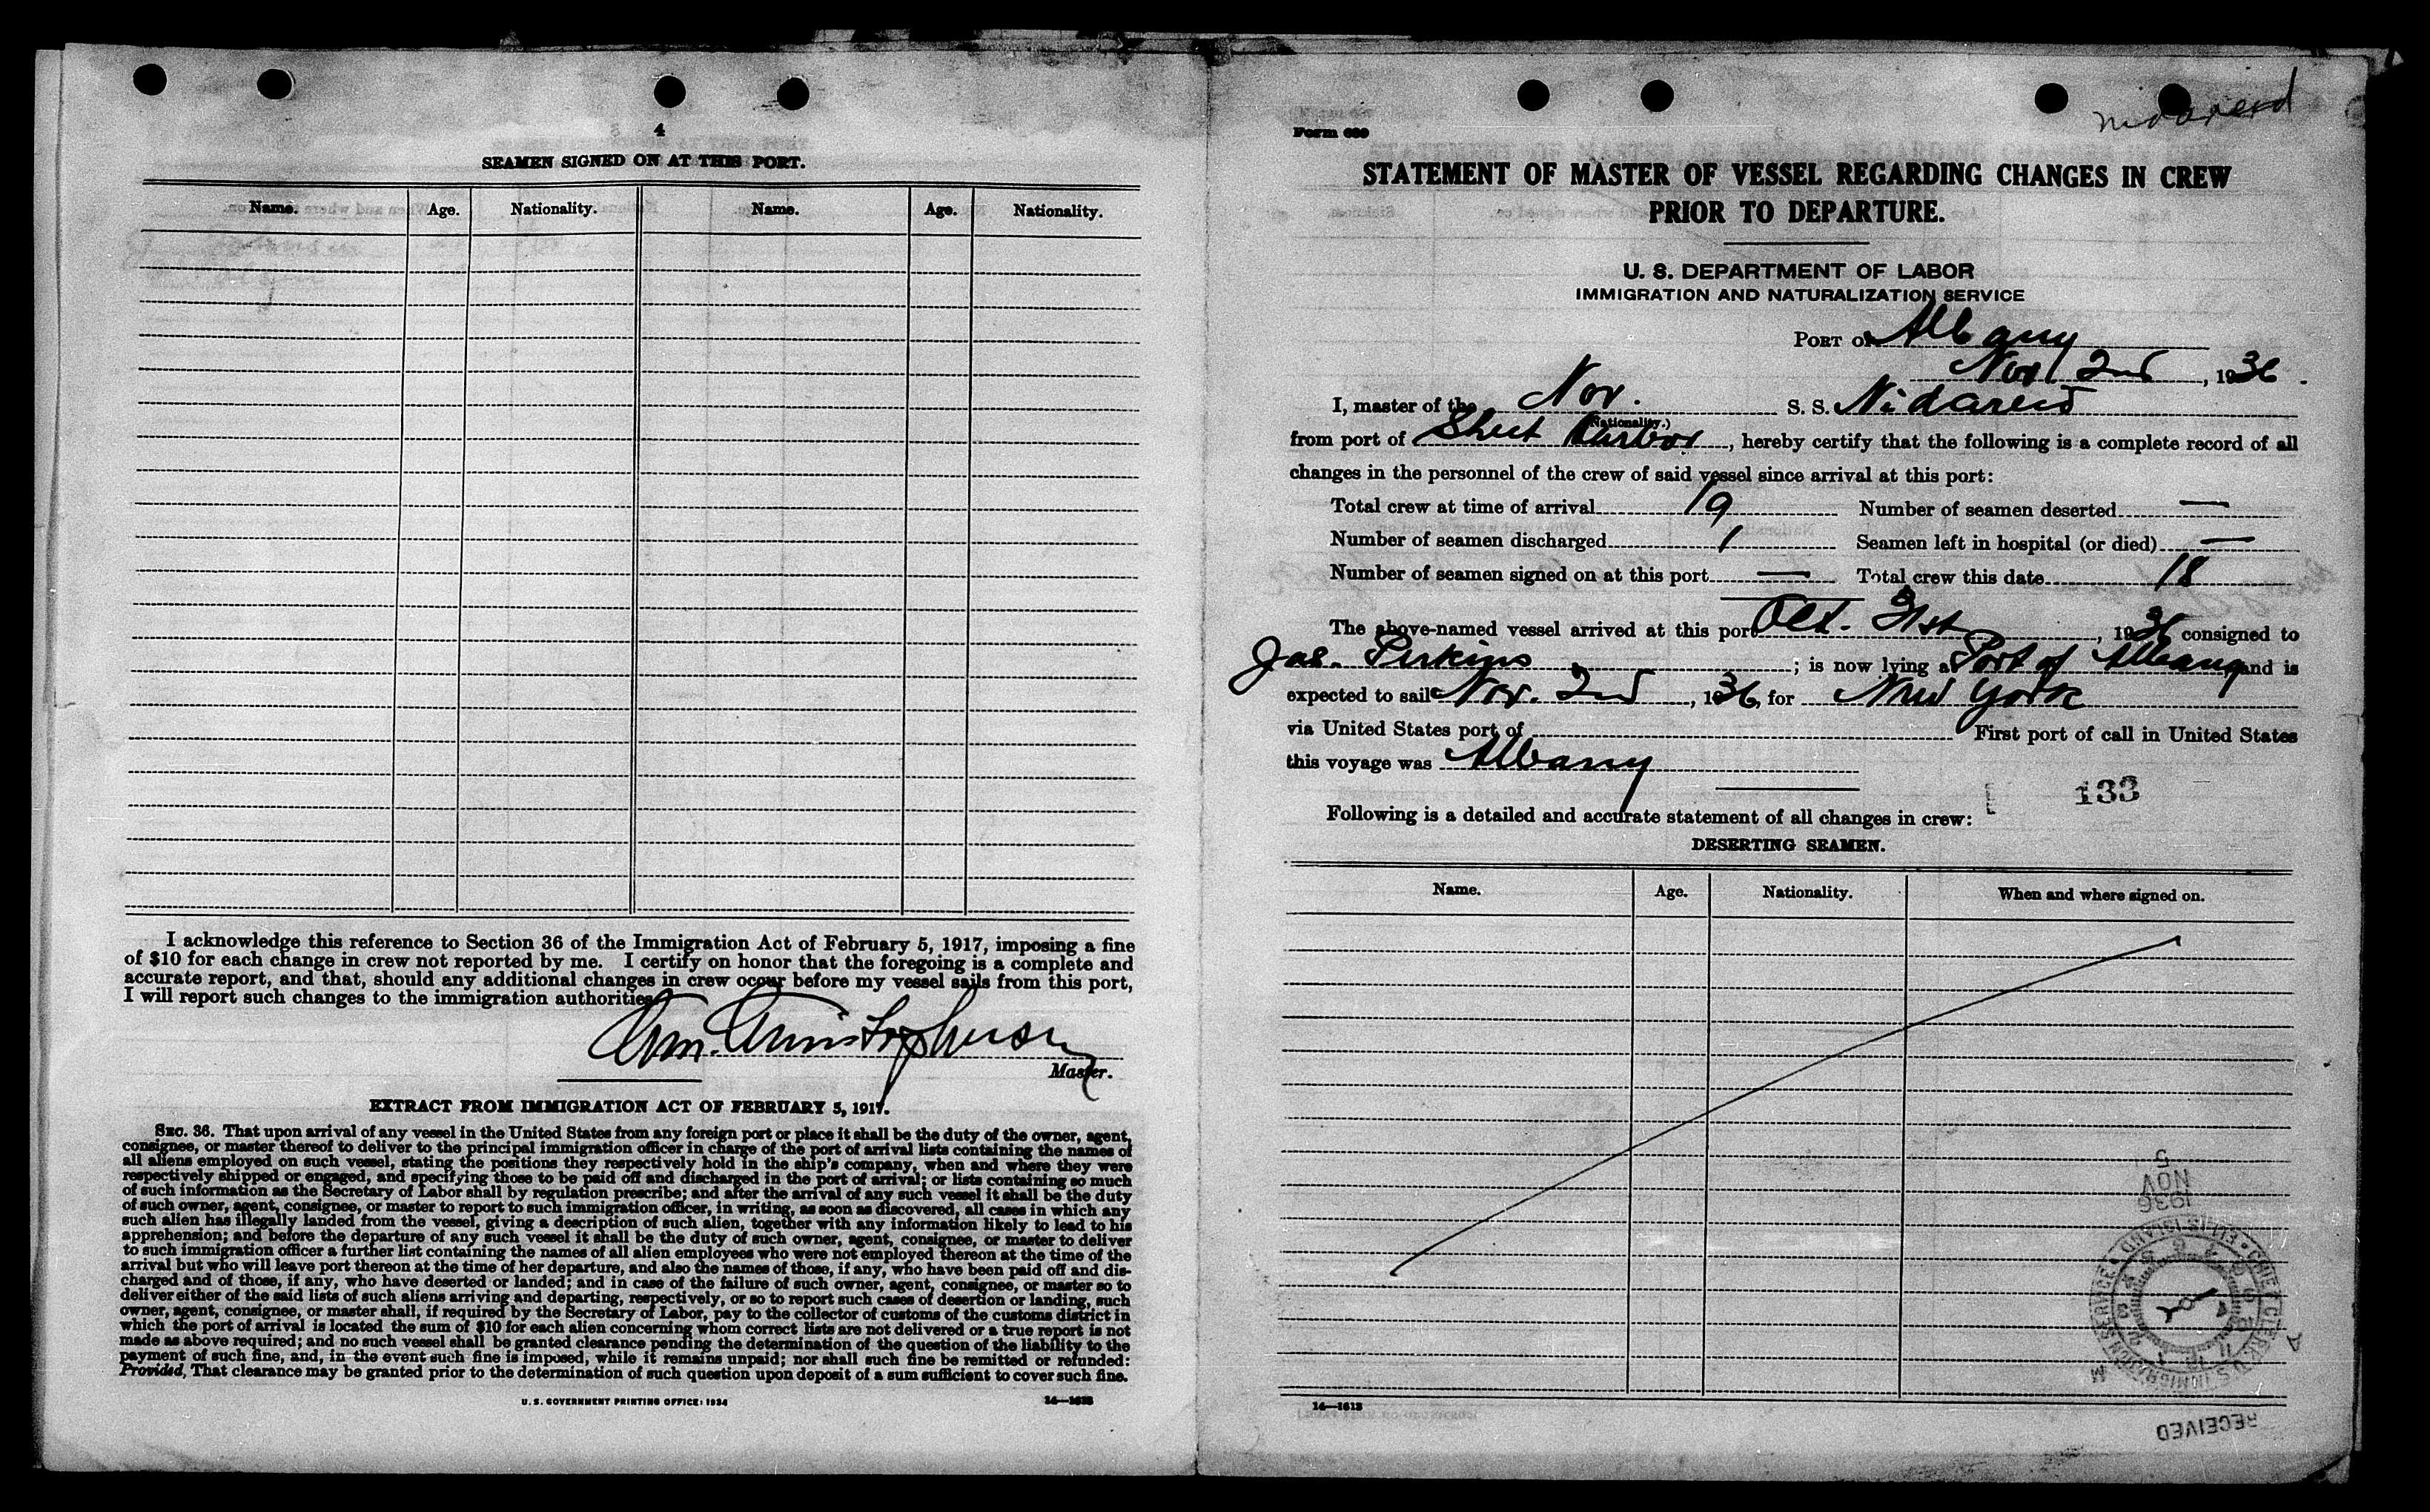 4
SEAMEN SIGNED ON AT THIS PORT.
Name. Age. Nationality. Name. Age. Nationality.
I acknowledge this reference to Section 36 of the Immigration Act of February 5, 1917, imposing a fine
of $10 for each change in crew not reported by me. I certify on honor that the foregoing is a complete and
accurate report, and that, should any additional changes in crew occur before my vessel sails from this port,
I will report such changes to the immigration authorities.
Master.
EXTRACT FROM IMMIGRATION ACT OF FEBRUARY 5, 1917.
SEC. 36. That upon arrival of any vessel in the United States from any foreign port or place it shall be the duty of the owner, agent,
consignee, or master thereof to deliver to the principal immigration officer in charge of the port of arrival lists containing the names of
all aliens employed on such vessel, stating the positions they respectively hold in the ship's company, when and where they were
respectively shipped or engaged, and specifying those to be paid off and discharged in the port of arrival; or lists containing so much
of such information as the Secretary of Labor shall by regulation prescribe; and after the arrival of any such vessel it shall be the duty
of such owner, agent, consignee, or master to report to such immigration officer, in writing, as soon as discovered, all cases in which any
such alien has illegally landed from the vessel, giving a description of such alien, together with any information likely to lead to his
apprehension; and before the departure of any such vessel it shall be the duty of such owner, agent, consignee, or master to deliver
to such immigration officer a further list containing the names of all alien employees who were not employed thereon at the time of the
arrival but who will leave port thereon at the time of her departure, and also the names of those, if any, who have been paid off and dis-
charged and of those, if any, who have deserted or landed; and in case of the failure of such owner, agent, consignee, or master so to
deliver either of the said lists of such aliens arriving and departing, respectively, or so to report such cases of desertion or landing, such
owner, agent, consignee, or master shall, if required by the Secretary of Labor, pay to the collector of customs of the customs district in
which the port of arrival is located the sum of $10 for each alien concerning whom correct lists are not delivered or a true report is not
made as above required; and no such vessel shall be granted clearance pending the determination of the question of the liability to the
payment of such fine, and, in the event such fine is imposed, while it remains unpaid; nor shall such fine be remitted or refunded:
Provided, That clearance may be granted prior to the determination of such question upon deposit of a sum sufficient to cover such fine.
U. S. GOVERNMENT PRINTING OFFICE: 1934
Form 689
STATEMENT OF MASTER OF VESSEL REGARDING CHANGES IN CREW
PRIOR TO DEPARTURE.
U. S. DEPARTMENT OF LABOR
IMMIGRATION AND NATURALIZATION SERVICE
PORT OF Albany
Nov 2nd, 1936.
I, master of the Nor. S. S. Nidareid
(Nationality.)
from port of Sheet Harbor, hereby certify that the following is a complete record of all
changes in the personnel of the crew of said vessel since arrival at this port:
Total crew at time of arrival 19 Number of seamen deserted —
Number of seamen discharged 1 Seamen left in hospital (or died) —
Number of seamen signed on at this port — Total crew this date 18
The above-named vessel arrived at this port Oct. 31st, 1936 consigned to
Jas. Perkins; is now lying at Port of Albany and is
expected to sail Nov. 2nd, 1936, for New York
via United States port of First port of call in United States
this voyage was Albany
133
Following is a detailed and accurate statement of all changes in crew:
DESERTING SEAMEN.
Name. Age. Nationality. When and where signed on.
5
NOV
1936
CHIEF CLERK U.S. IMMIGRATION SERVICE • ELLIS ISLAND •
RECEIVED
14—1613